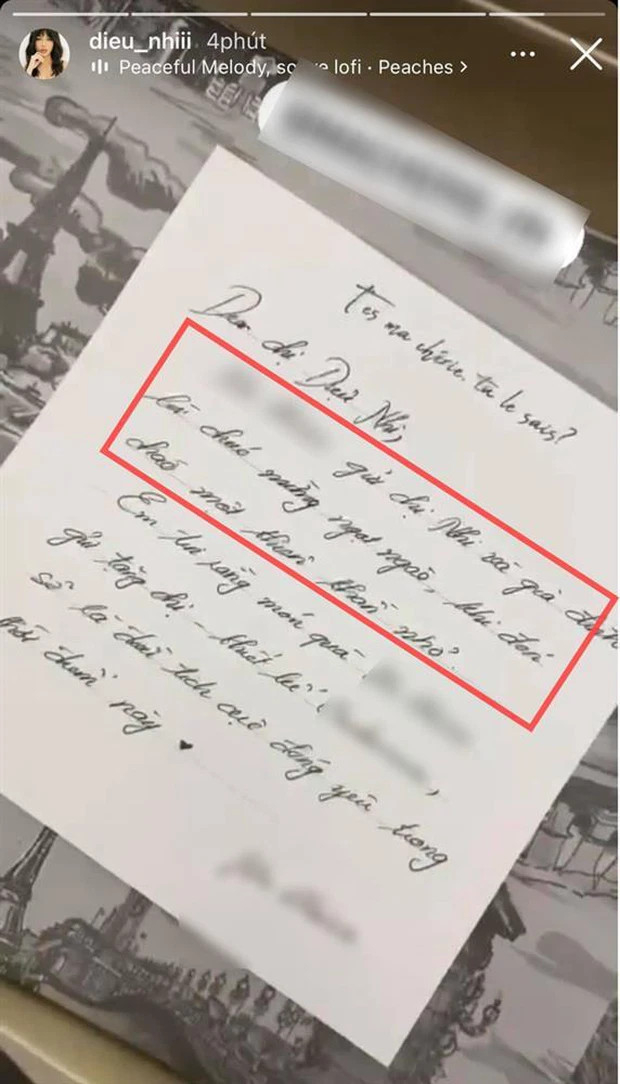 dieu_nhiii 4phút
Peaceful Melody, so e lofi · Peaches >
T'es ma chérie. tu le sais?
Dear chị Diệu Nhi,
gửi chị Nhi và gia đình
lời chào mừng ngọt ngào, khi đón
chào một thiên thần nhỏ.
Em tin rằng món quà
gửi tặng chị - thiết kế
sẽ là dấu tích cực đáng yêu trong
thời điểm này ♥